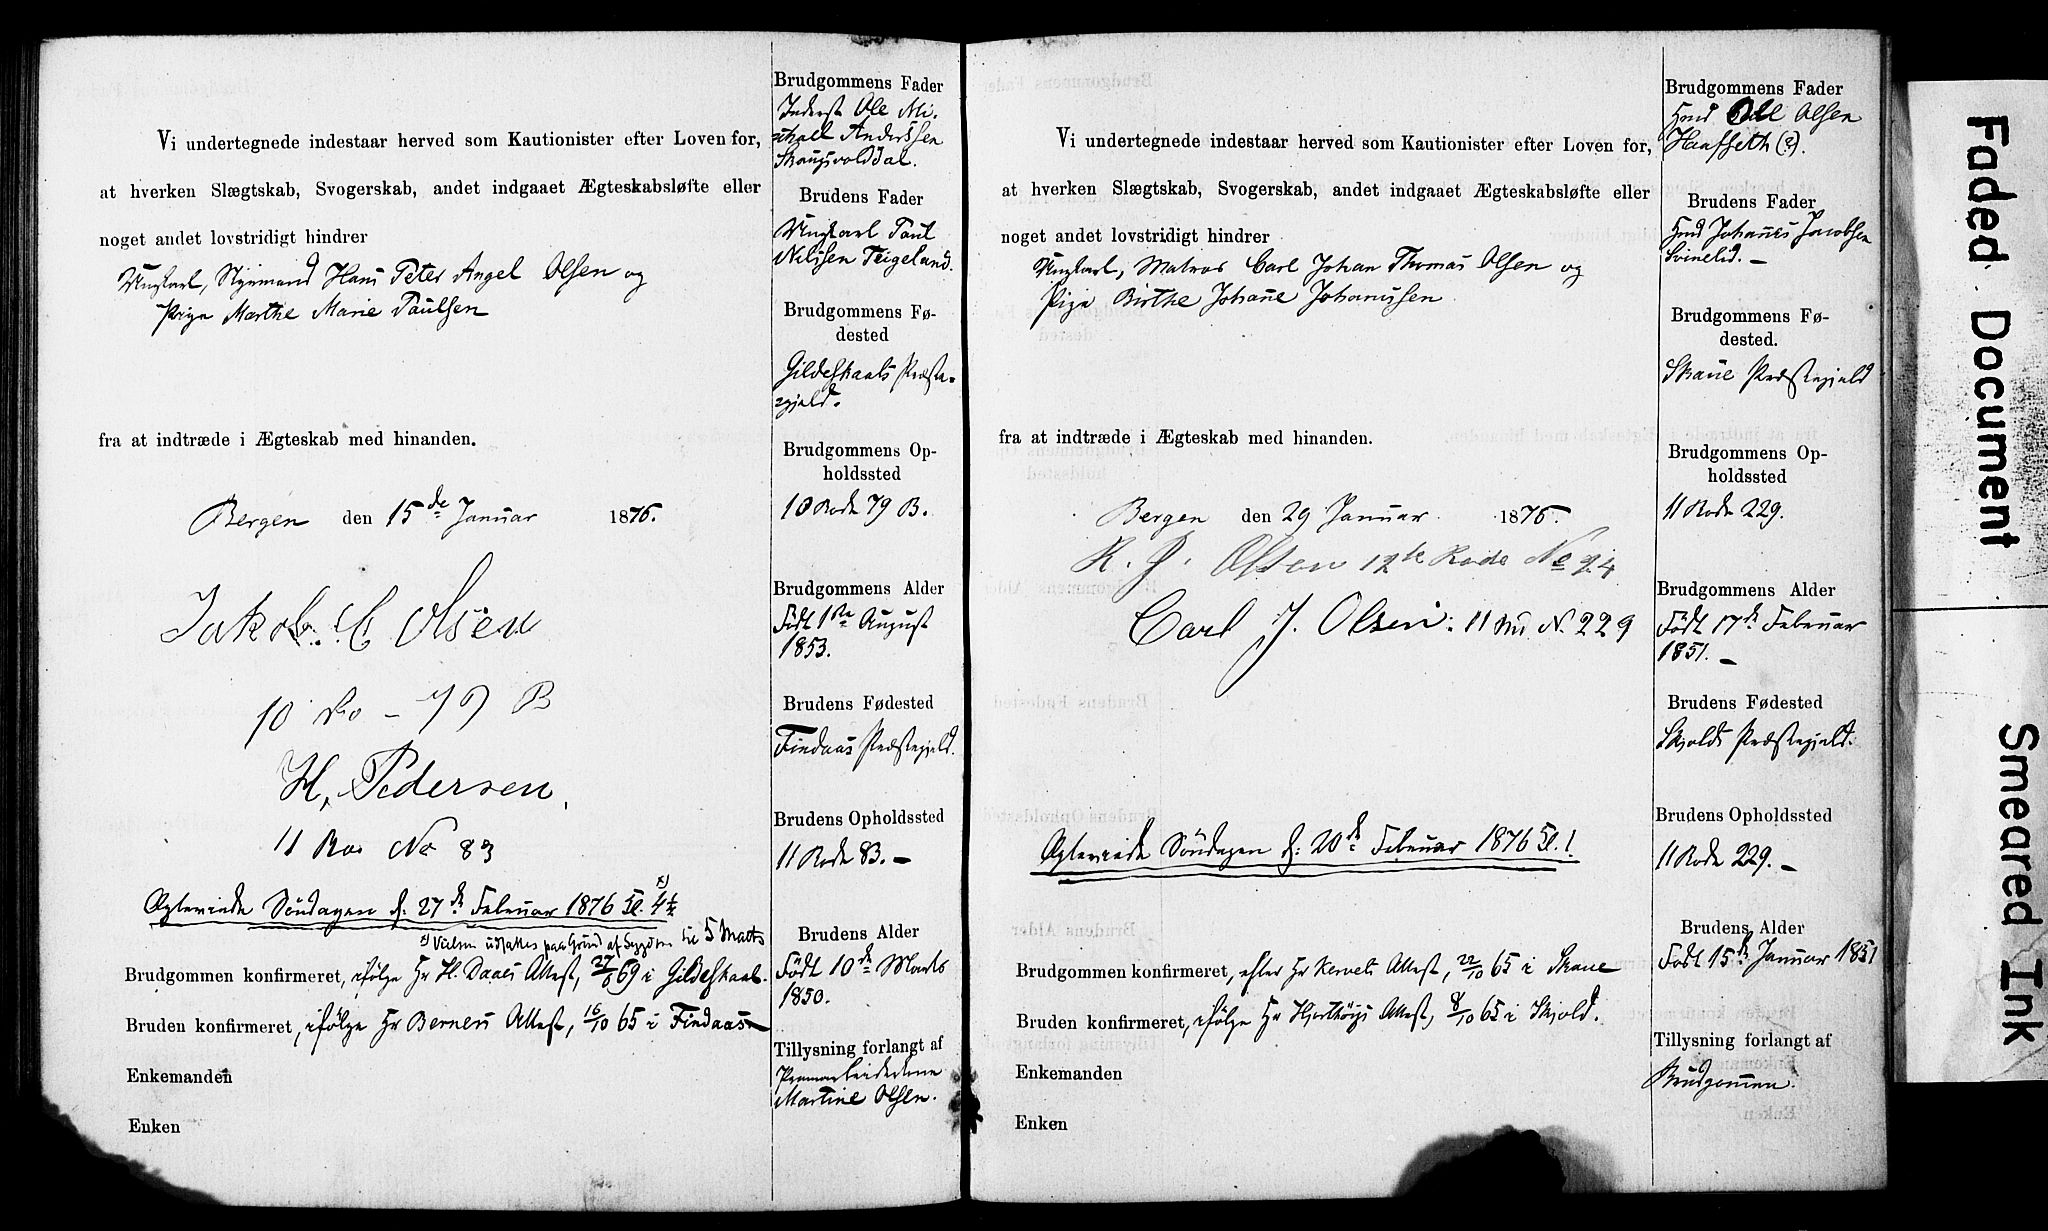 Vi undertegnede indestaar herved som Kautionister efter Loven for,
at hverken Slægtskab, Svogerskab, andet indgaaet Ægteskabsløfte eller
noget andet lovstridigt hindrer
Ungkarl, Styrmand Hans Peter Angel Olsen og
Pige Marthe Marie Paulsen
fra at indtræde i Ægteskab med hinanden.
Bergen den 15de Januar 1876.
Jakob C Olsen
10 Ro - 79 B
H. Pedersen.
11 Ro No 83
Ægteviede Søndagen d: 27de Februar 1876 Kl. 4½ x)
x) Vielsen udsattes paa Grund af Sygdom til 5 Marts
Brudgommen konfirmeret, ifølge Hr H. Daaes Attest, 27/6 69 i Gildeskaal.
Bruden konfirmeret, ifølge Hr Berners Attest, 16/10 65 i Findaas
Enkemanden
Enken
Brudgommens Fader
Inderst Ole Mi-
chael Anderssen
Brudens Fader
Ungkarl Paul
Nilssen Teigeland.
Brudgommens Fø-
dested
Gildeskaals Præste-
gjeld.
Brudgommens Op-
holdssted
10 Rode 79 B.
Brudgommens Alder
Født 1ste August
1853.
Brudens Fødested
Findaas Præstegjeld.
Brudens Opholdssted
11 Rode 83. –
Brudens Alder
Født 10de Marts
1850.
Tillysning forlangt af
Martine Olsen.
Vi undertegnede indestaar herved som Kautionister efter Loven for,
at hverken Slægtskab, Svogerskab, andet indgaaet Ægteskabsløfte eller
noget andet lovstridigt hindrer
Ungkarl, Matros Carl Johan Thomas Olsen og
Pige Birthe Johanne Johannessen
fra at indtræde i Ægteskab med hinanden.
Bergen den 29 Januar 1876.
R. J. Olsen 12te Rode No 24
Carl J. Olsen: 11 Rd. N. 229
Ægteviede Søndagen d: 20de Februar 1876 Kl. 1.
Brudgommen konfirmeret, efter Hr Attest, 22/10 65 i Skaue
Bruden konfirmeret, ifølge Hr Hjorthøys Attest, 8/10 65 i Skjold.
Enkemanden
Enken
Brudgommens Fader
Gmd Ole Olsen
Haafseth (?).
Brudens Fader
Gmd Johannes Jacobsen
Svinelid. –
Brudgommens Fø-
dested.
Skaue Præstegjeld
Brudgommens Op-
holdssted
11 Rode 229.
Brudgommens Alder
Født 17de Februar
1851. –
Brudens Fødested
Skjolds Præstegjeld.
Brudens Opholdssted
11 Rode 229. –
Brudens Alder
Født 15de Januar 1851
Tillysning forlangt af
Brudgommen.
Faded Document
Smeared Ink